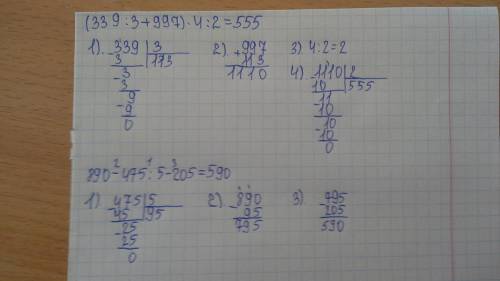 (339:3+997)·4:2=555
1) 339 | 3   2) 997   3) 4:2=2
- 3 | 113   + 113   4) 1110 | 2
3   1110   10 | 555
- 3   11
9   - 10
- 9   10
0   - 10
0
890-475:5-205=590
2 1 3
1) 475 | 5   2) 890   3) 795
- 45 | 95   - 95   - 205
25   795   590
- 25
0